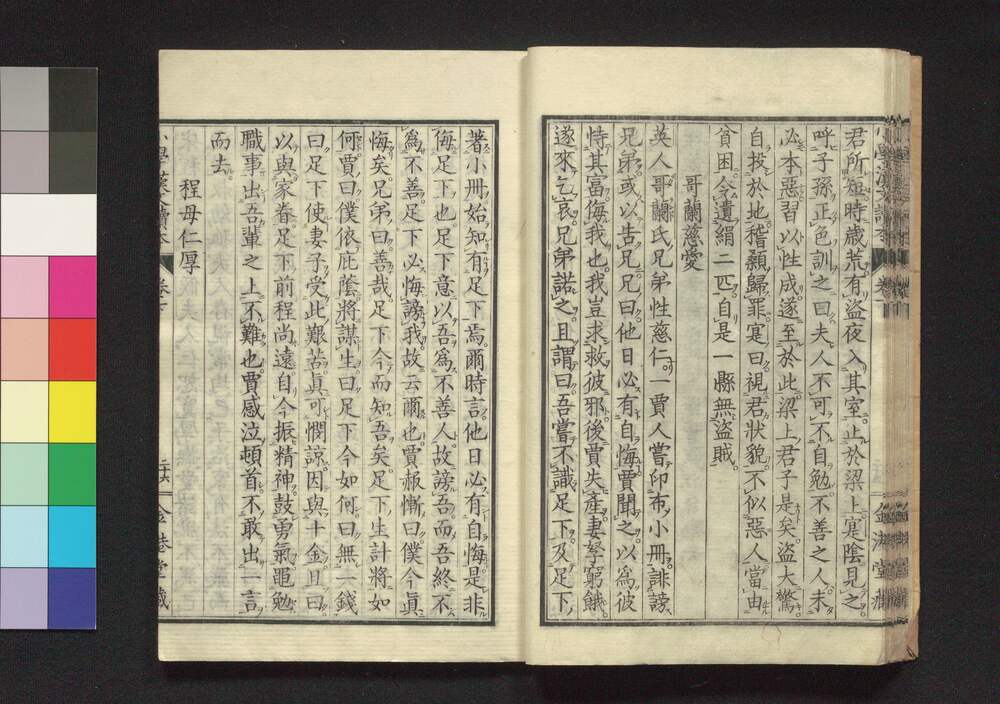 君所短時歳荒有盗夜入其室止於梁上寔陰見之
呼子孫正色訓之曰夫人不可不自勉不善之人未
必本惡習以性成遂至於此梁上君子是矣盗大驚
自投於地稽顙歸罪寔曰視君狀貌不似惡人當由
貧困令遺絹二匹自是一縣無盗賊
哥蘭慈愛
英人哥蘭氏兄弟性慈仁一賈人嘗印布小冊誹謗
兄弟或以告兄兄曰他日必有自悔賈聞之以爲彼
恃其富侮我也我豈求救彼邪後賈失產妻孥窮餓
遂來乞哀兄弟諾之且謂曰吾嘗不識足下及足下
著小冊始知有足下焉爾時言他日必有自悔是非
侮足下也足下意以吾爲不善人故謗吾而吾終不
爲不善足下必悔謗我故云爾也賈赧慚曰僕今眞
悔矣兄弟曰善哉足下今而知吾矣足下生計將如
何賈曰僕依庇蔭將謀生曰足下今如何曰無一錢
曰足下使妻子受此艱苦眞可憫諒因與十金且曰
以與家眷足下前程尚遠自今振精神鼓勇氣黽勉
職事出吾輩之上不難也賈感泣頓首不敢出一言
而去
程母仁厚